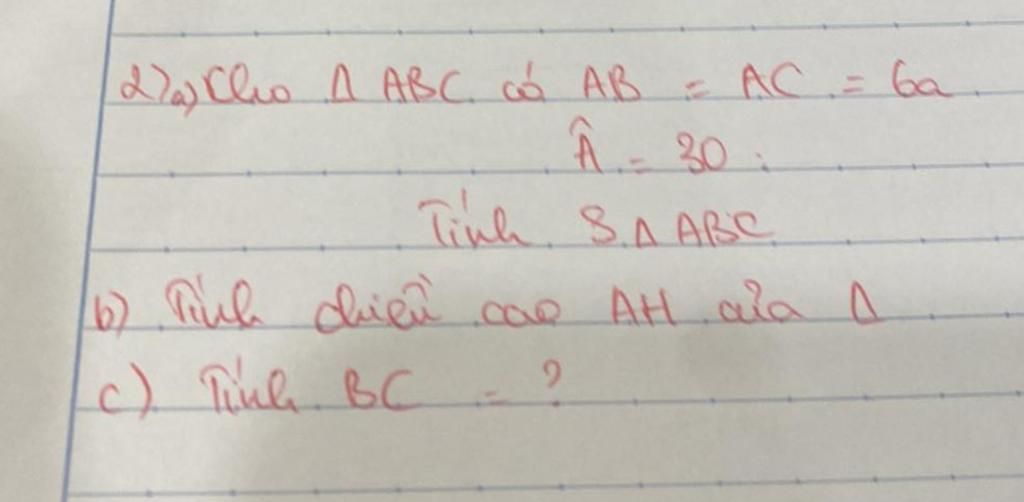 2) a) Cho Δ ABC có AB = AC = 6a
Â = 30 :
Tính S Δ ABC
b) Tính chiều cao AH của Δ
c) Tính BC = ?